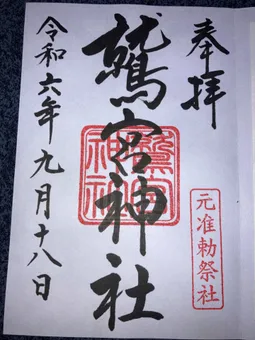 奉拝
元准勅祭社
鷲宮神社
鷲宮神社
令和六年九月十八日